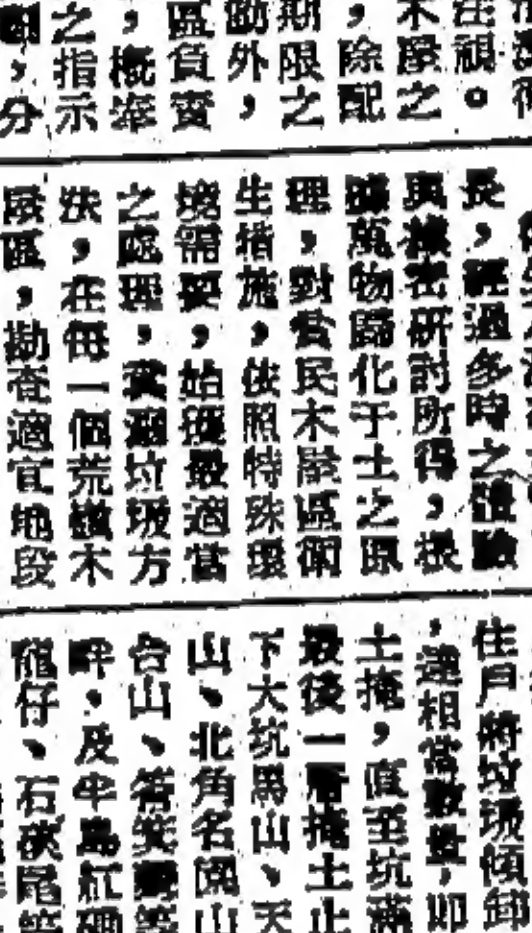 注視。
木屋之
，除配
期限之
勘外，
區貧寮
，概準
之指示
，分
長，經過多時之體驗
與縝密研討所得，根
據萬物歸化于土之原
理，對貧民木屋區衛
生措施，依照特殊環
境需要，始獲最適當
之處理，糞溺垃圾方
法，在每一個荒嶺木
屋區，勘查適宜地段
住戶將垃圾傾卸
，達相當數量，即
土掩，直至坑滿
最後一層掩土止
下大坑黑山、天
山、北角名園山
台山、筲箕灣等
畔，及半島紅磡
龍仔、石硤尾等